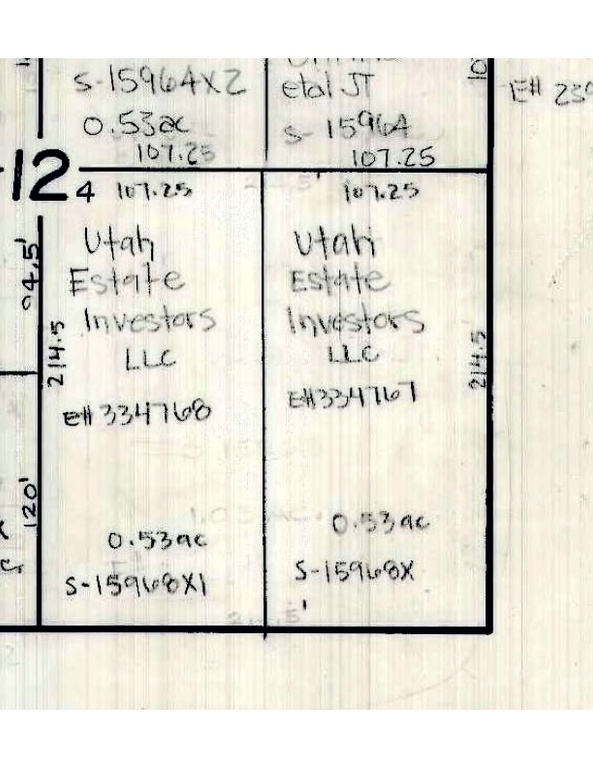 S-15964X2
0.53ac
107.25
etal JT
S-15964
107.25
E#
12
4
107.25
Utah
Estate
Investors
LLC
E# 334768
0.53ac
S-15968X1
107.25
Utah
Estate
Investors
LLC
E#334767
0.53ac
S-15968X
94.5'
214.5
120'
214.5